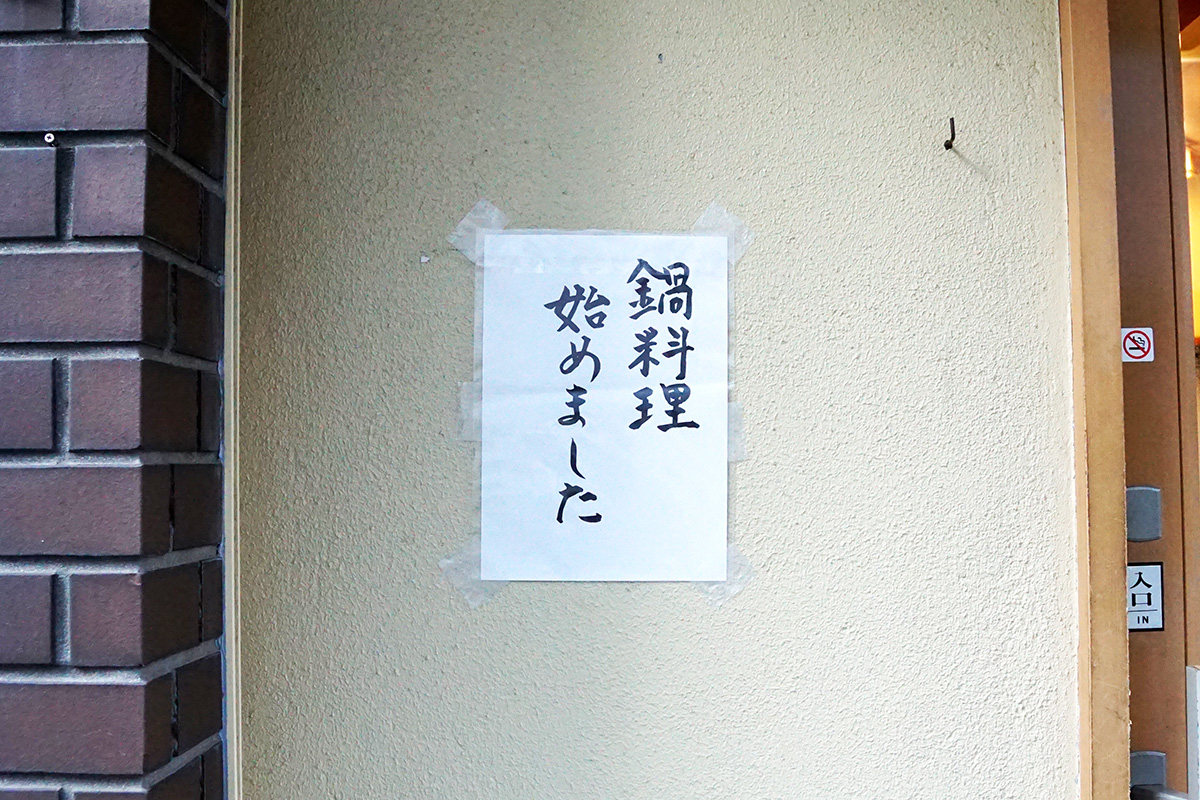 鍋料理
始めました
入口
IN